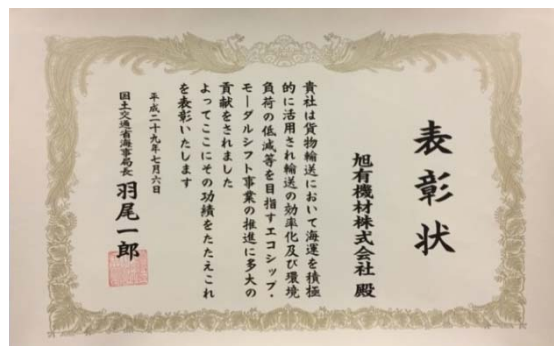 表彰状
旭有機材株式会社 殿
貴社は貨物輸送において海運を積極
的に活用され輸送の効率化及び環境
負荷の低減等を目指すエコシップ・
モーダルシフト事業の推進に多大の
貢献をされました
よってここにその功績をたたえこれ
を表彰いたします
平成二十九年七月六日
国土交通省海事局長 羽尾一郎